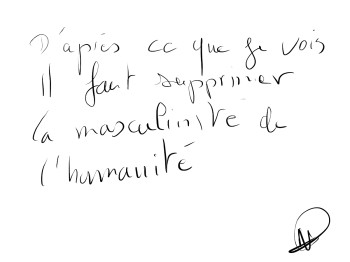 D'après ce que je vois
Il faut supprimer
la masculinité de
l'humanité